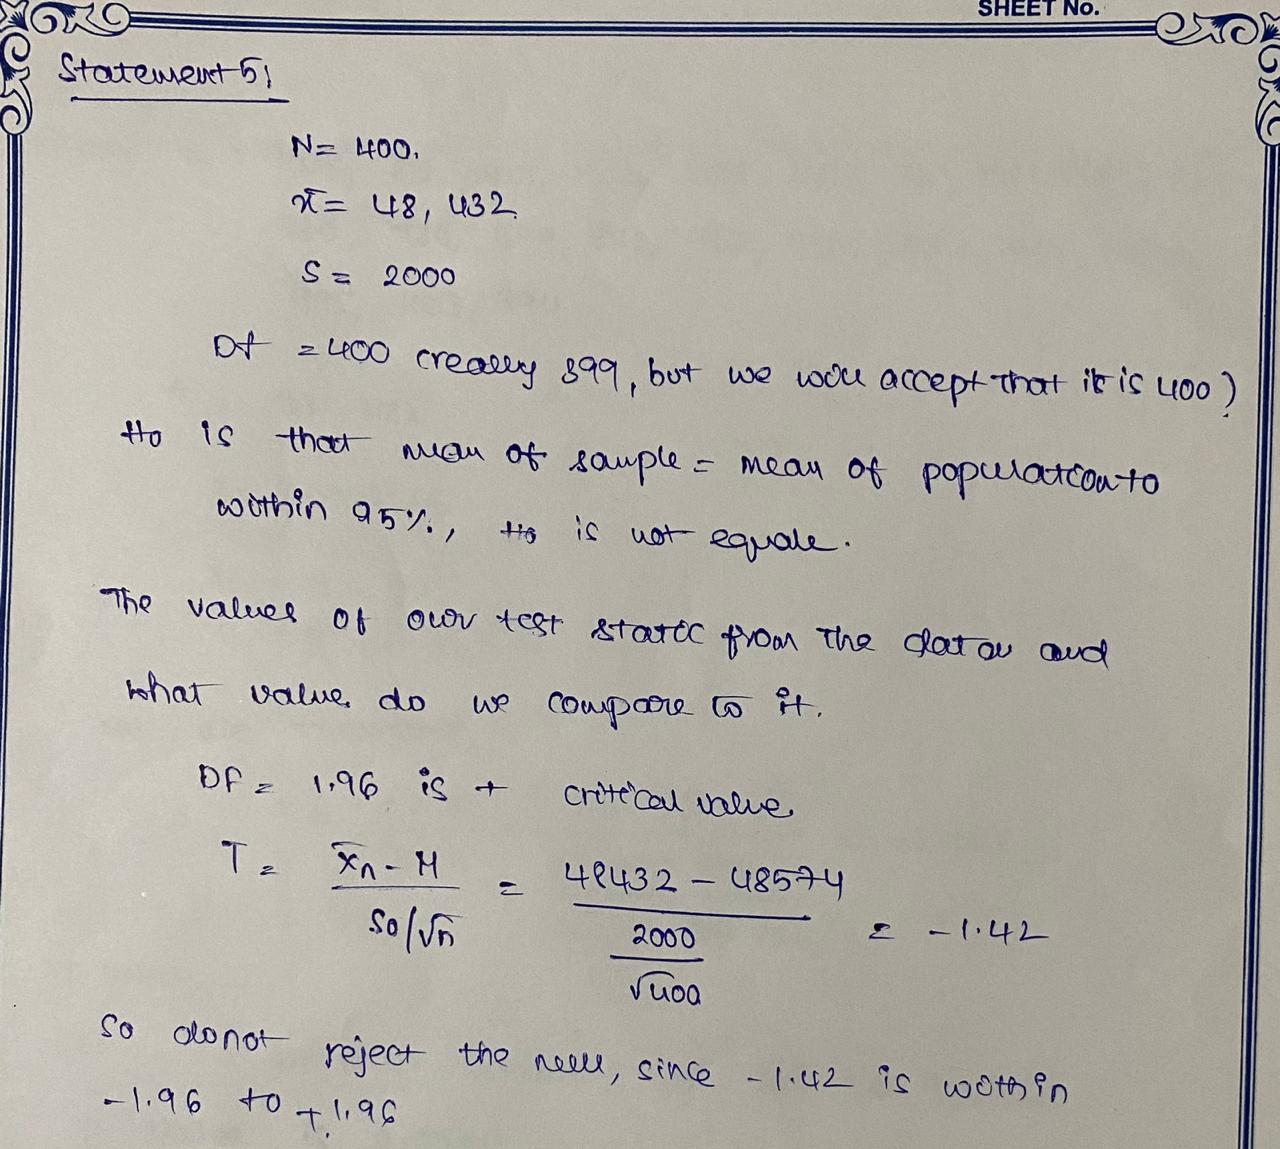 SHEET No.
Statement 5;
N = 400.
x̄ = 48, 432.
S = 2000
Df = 400 creally 399, but we will accept that it is 400)
Ho is that mean of sample = mean of population to
within 95%, Ho is not equale.
The values of our test static from the data and
what value do we compare to it.
DF = 1.96 is + critical value.
T = x̄n - M / So/√n = 48432 - 48574 / 2000 / √400 = -1.42
So donot reject the null, since -1.42 is within
-1.96 to +1.96